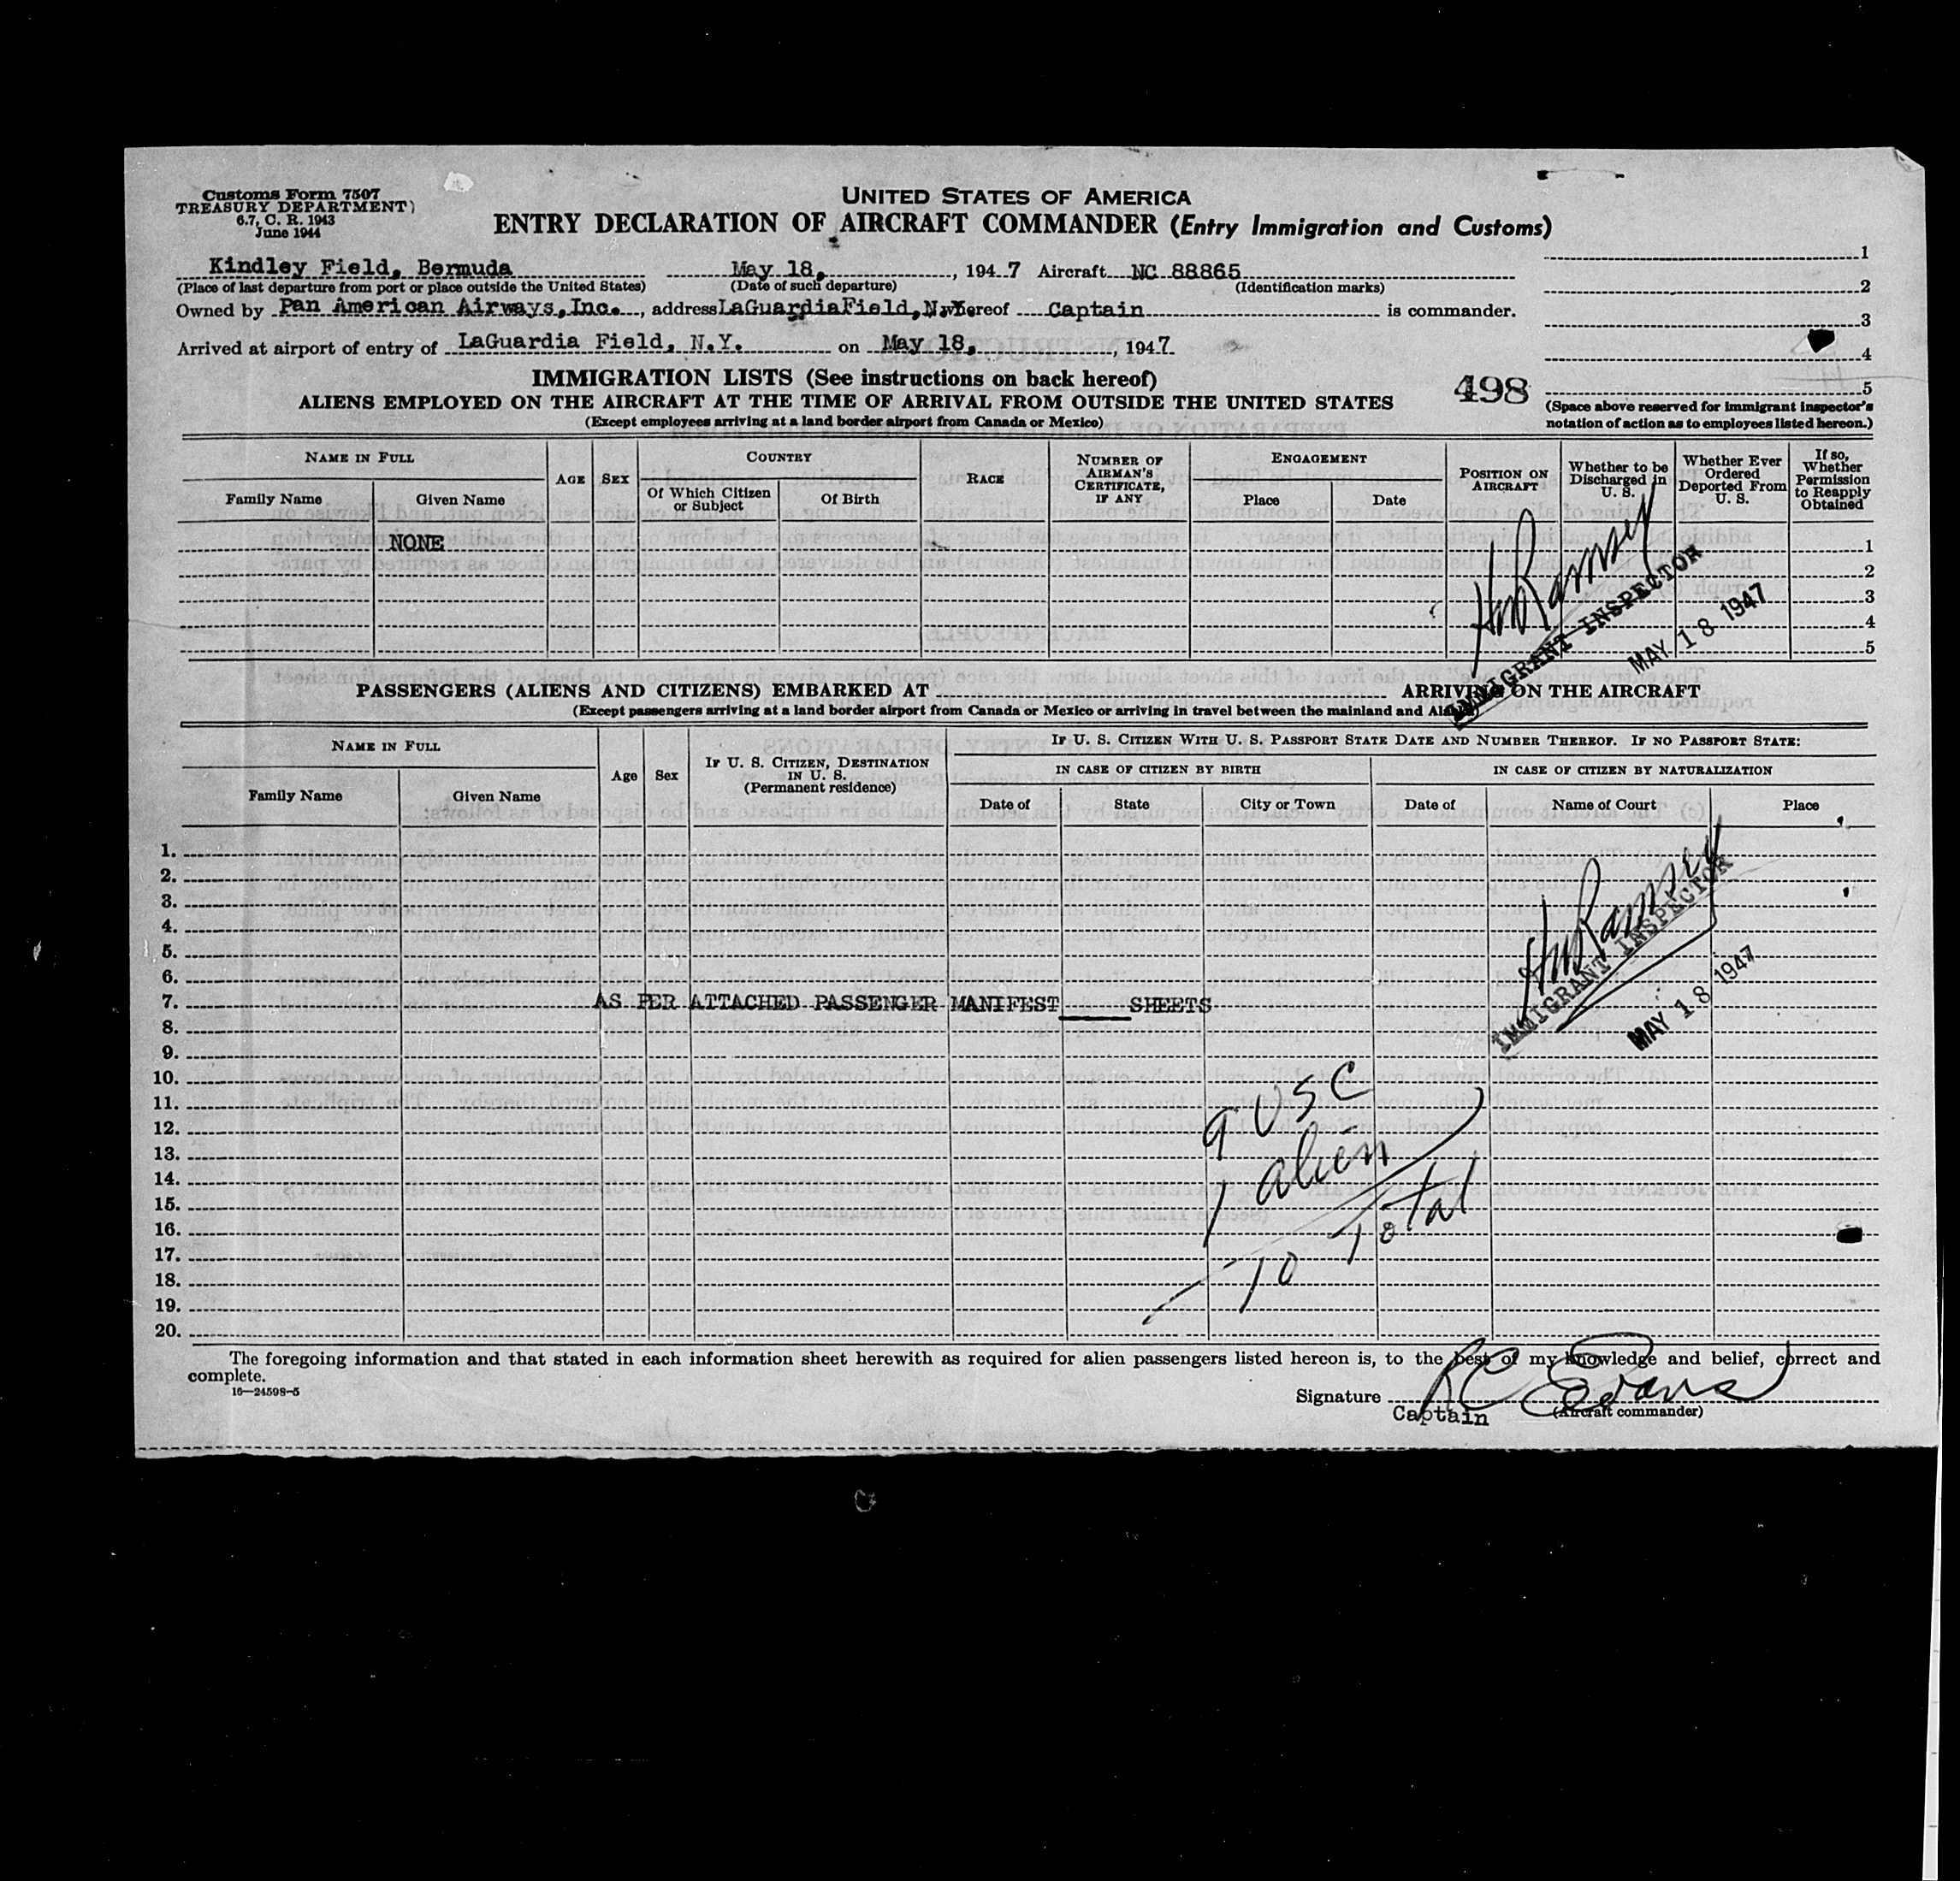 Customs Form 7507
TREASURY DEPARTMENT)
6.7, C. R. 1943
June 1944
UNITED STATES OF AMERICA
ENTRY DECLARATION OF AIRCRAFT COMMANDER (Entry Immigration and Customs)
Kindley Field, Bermuda May 18, , 1947 Aircraft NC 88865
(Place of last departure from port or place outside the United States) (Date of such departure) (Identification marks)
Owned by Pan American Airways, Inc. , address LaGuardia Field, N.Y. whereof Captain is commander.
Arrived at airport of entry of LaGuardia Field, N.Y. on May 18, , 1947
1
2
3
4
5
IMMIGRATION LISTS (See instructions on back hereof)
498
ALIENS EMPLOYED ON THE AIRCRAFT AT THE TIME OF ARRIVAL FROM OUTSIDE THE UNITED STATES
(Except employees arriving at a land border airport from Canada or Mexico)
(Space above reserved for immigrant inspector's
notation of action as to employees listed hereon.)
NAME IN FULL
Family Name
Given Name
AGE
SEX
COUNTRY
Of Which Citizen
or Subject
Of Birth
RACE
NUMBER OF
AIRMAN'S
CERTIFICATE,
IF ANY
ENGAGEMENT
Place
Date
POSITION ON
AIRCRAFT
Whether to be
Discharged in
U. S.
Whether Ever
Ordered
Deported From
U. S.
If so,
Whether
Permission
to Reapply
Obtained
NONE
1
2
3
4
5
Ramsey
IMMIGRANT INSPECTOR
MAY 18 1947
PASSENGERS (ALIENS AND CITIZENS) EMBARKED AT ARRIVING ON THE AIRCRAFT
(Except passengers arriving at a land border airport from Canada or Mexico or arriving in travel between the mainland and Alaska)
NAME IN FULL
Family Name
Given Name
Age
Sex
IF U. S. CITIZEN, DESTINATION
IN U. S.
(Permanent residence)
IF U. S. CITIZEN WITH U. S. PASSPORT STATE DATE AND NUMBER THEREOF. IF NO PASSPORT STATE:
IN CASE OF CITIZEN BY BIRTH
Date of
State
City or Town
IN CASE OF CITIZEN BY NATURALIZATION
Date of
Name of Court
Place
1.
2.
3.
4.
5.
6.
7. AS PER ATTACHED PASSENGER MANIFEST SHEETS
8.
9.
10.
11.
12.
13.
14.
15.
16.
17.
18.
19.
20.
Ramsey
IMMIGRANT INSPECTOR
MAY 18 1947
9 USC
1 alien
10 Total
The foregoing information and that stated in each information sheet herewith as required for alien passengers listed hereon is, to the best of my knowledge and belief, correct and
complete.
16—24598-5
Signature R C Evans
Captain (Aircraft commander)